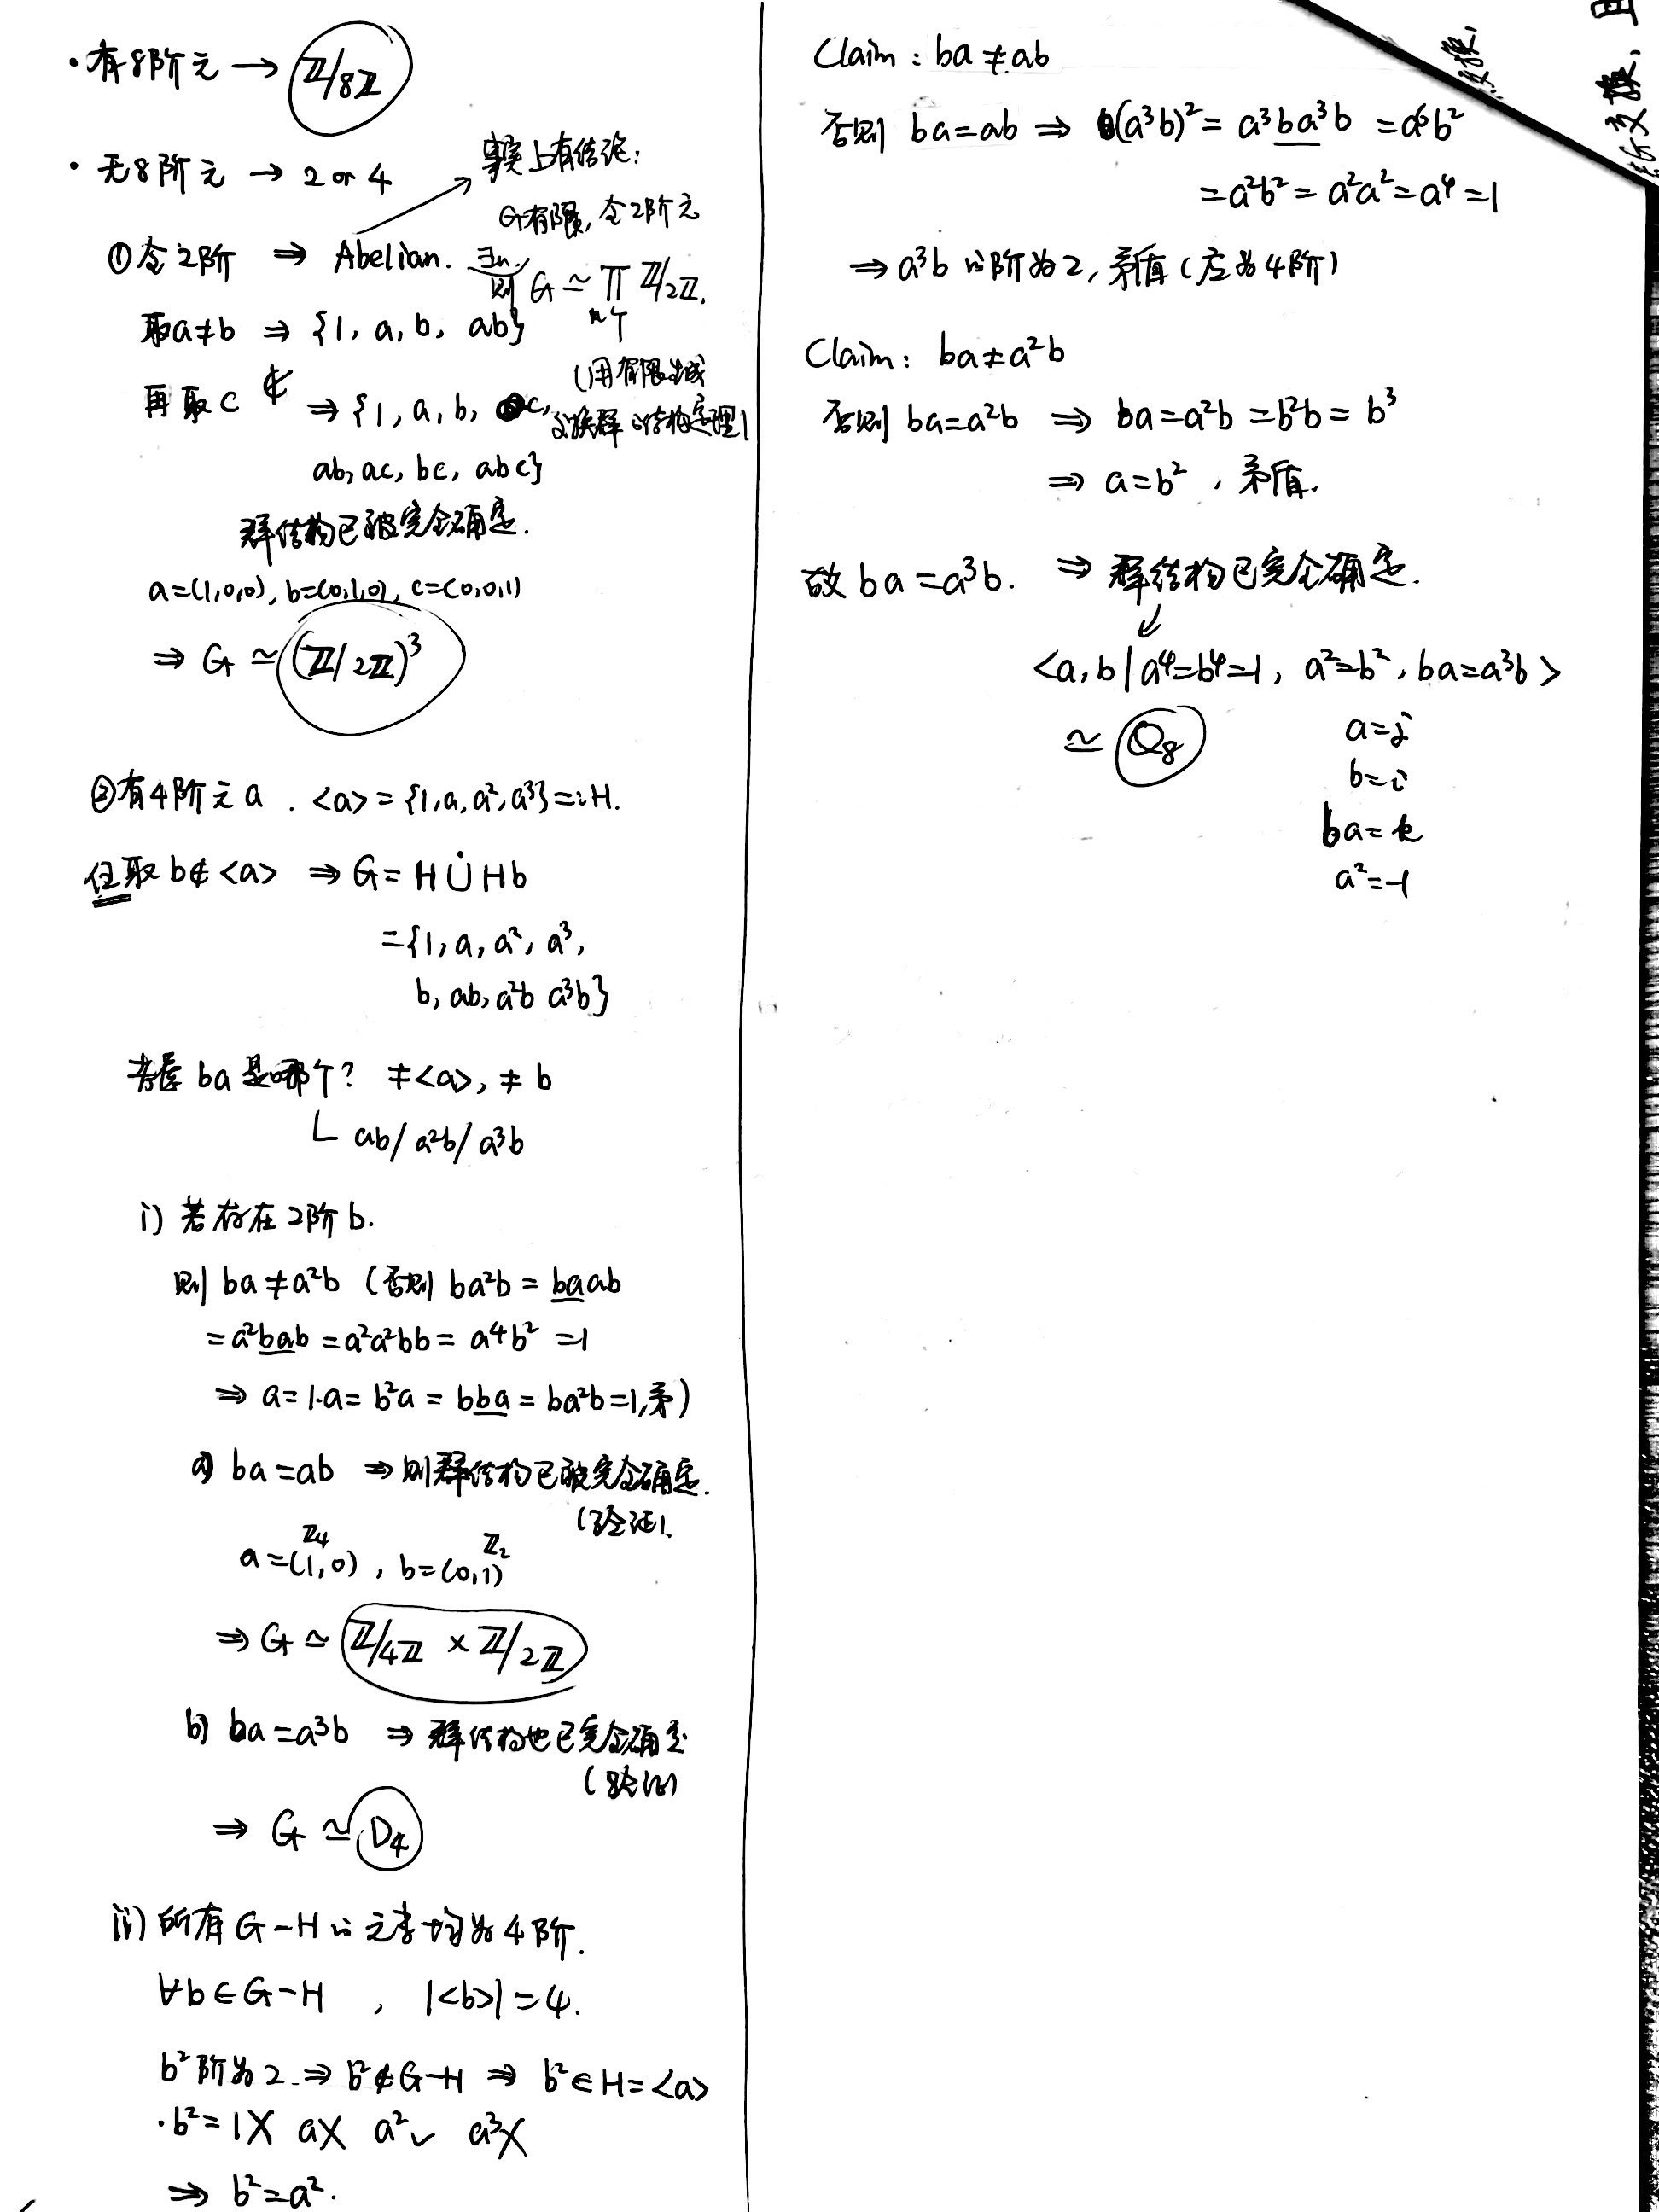 · 有8阶元 → ℤ/8ℤ
· 无8阶元 → 2 or 4
事实上有结论:
G有限, 全2阶元
∃n, 则 G ≃ ∏ ℤ/2ℤ.
n个
(用有限生成
交换群的结构定理)
① 全2阶 ⇒ Abelian.
取a≠b ⇒ {1, a, b, ab}
再取c ∉ ⇒ {1, a, b, c,
ab, ac, bc, abc}
群结构已被完全确定.
a=(1,0,0), b=(0,1,0), c=(0,0,1)
⇒ G ≃ (ℤ/2ℤ)³
② 有4阶元 a. <a> = {1, a, a², a³} =: H.
任取 b∉<a> ⇒ G = H ⊍ Hb
= {1, a, a², a³,
b, ab, a²b a³b}
考虑 ba 是哪个? ≠<a>, ≠ b
ab / a²b / a³b
i) 若存在2阶 b.
则 ba≠a²b (否则 ba²b = baab
= a²bab = a²a²bb = a⁴b² = 1
⇒ a = 1·a = b²a = bba = ba²b = 1, 矛)
a) ba=ab ⇒ 则群结构已被完全确定.
(验证).
ℤ₄ ℤ₂
a=(1,0), b=(0,1)
⇒ G ≃ ℤ/4ℤ × ℤ/2ℤ
b) ba=a³b ⇒ 群结构也已完全确定
(验证)
⇒ G ≃ D₄
ii) 所有 G-H 的元素均为4阶.
∀b∈G-H , |<b>|=4.
b²阶为2. ⇒ b²∉G-H ⇒ b²∈H=<a>
· b² = 1 X a X a² ✓ a³ X
⇒ b²=a².
Claim: ba≠ab
否则 ba=ab ⇒ (a³b)² = a³ba³b = a⁶b²
= a²b² = a²a² = a⁴ = 1
⇒ a³b 的阶为2, 矛盾 (应为4阶)
Claim: ba≠a²b
否则 ba=a²b ⇒ ba=a²b=b²b=b³
⇒ a=b², 矛盾.
故 ba=a³b. ⇒ 群结构已完全确定.
<a, b | a⁴=b⁴=1, a²=b², ba=a³b>
≃ Q₈
a=j
b=i
ba=k
a²=-1
交换,
交换, 且